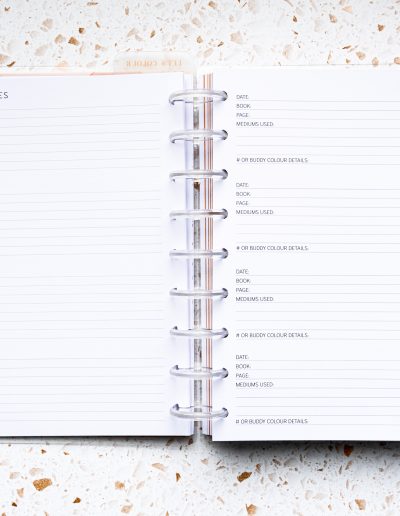 LET'S COLOUR
ES
DATE:
BOOK:
PAGE:
MEDIUMS USED:
# OR BUDDY COLOUR DETAILS:
DATE:
BOOK:
PAGE:
MEDIUMS USED:
# OR BUDDY COLOUR DETAILS:
DATE:
BOOK:
PAGE:
MEDIUMS USED:
# OR BUDDY COLOUR DETAILS:
DATE:
BOOK:
PAGE:
MEDIUMS USED:
# OR BUDDY COLOUR DETAILS: